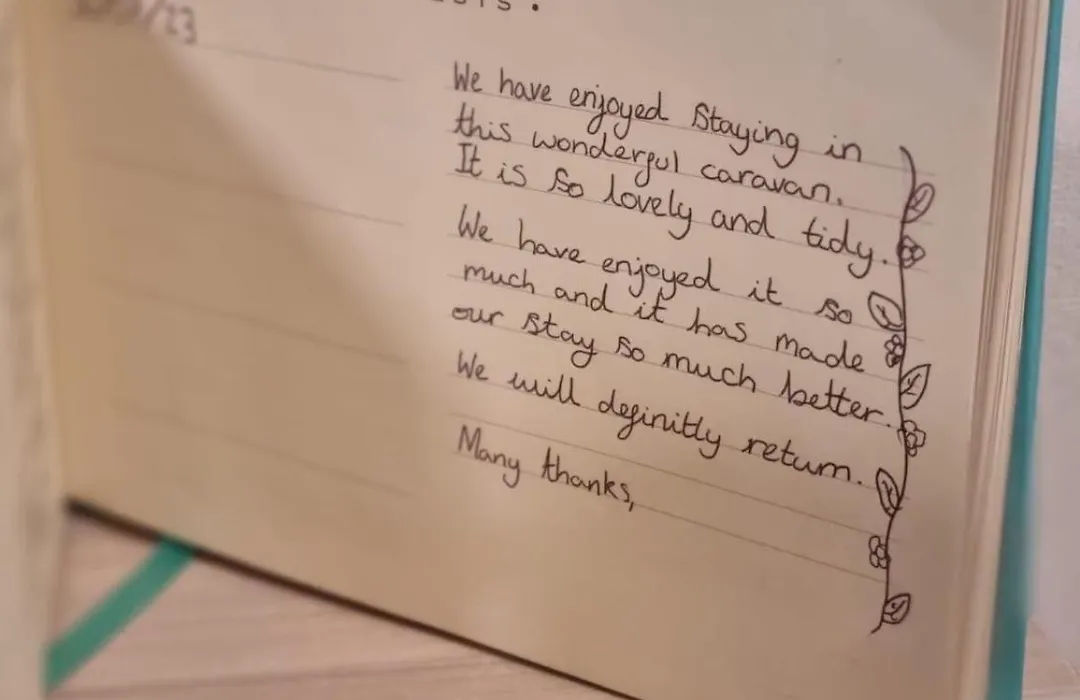 /23
We have enjoyed Staying in
this wonderful caravan.
It is so lovely and tidy.
We have enjoyed it so
much and it has made
our stay so much better.
We will definitly return.
Many thanks,